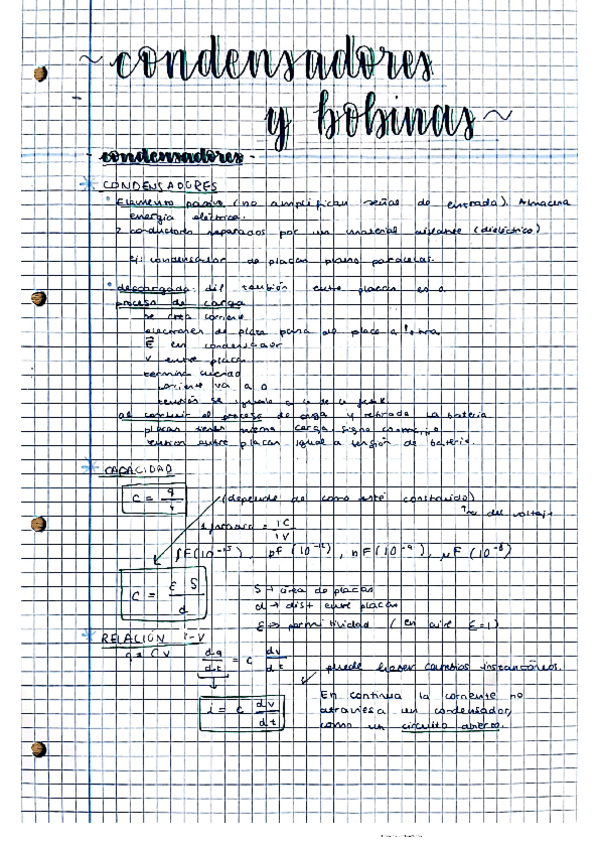 ~condensadores
y bobinas~
- condensadores -
* CONDENSADORES
• Elemento pasivo (no amplifican señas de entrada). Almacena
energía eléctrica.
2 conductores separados por un material aislante (dieléctrico)
ej: condensador de placas plano paralelas.
• descargado: dif tensión entre placas es 0.
proceso de carga
se crea corriente
electrones de placa para de placa a l'otra
E en condensador
V entre placas
termina cuando
corriente va a 0
tensión se iguala a la de la
al concluir el proceso de carga y retirada la batería
placas tienen misma carga, signo
tensión entre placas igual a tensión de batería.
* CAPACIDAD
C = q / v
(depende de como esté construido)
no del voltaje
1 faraday = 1C / 1V
fF(10^-15), pf (10^-12), nF(10^-9), μF (10^-6)
C = ε S / d
S → área de placas
d → dist entre placas
ε → permitividad (en aire ε=1)
* RELACIÓN i-V
q = C v
dq / dt = C dv / dt
puede haber cambios instantáneos.
i = c dv / dt
En continua la corriente no
atraviesa un condensador,
como un circuito abierto.